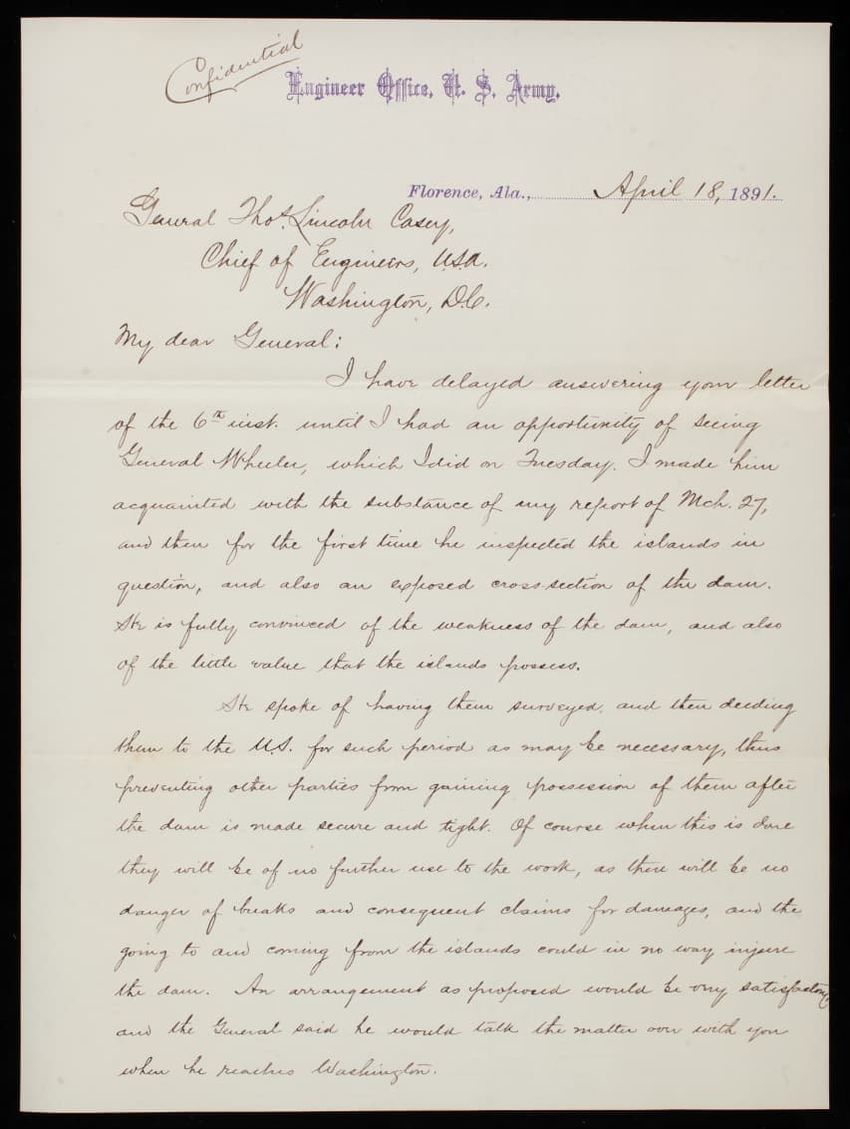 Confidential
Engineer Office, U. S. Army.
Florence, Ala., April 18, 1891.
General Thos. Lincoln Casey,
Chief of Engineers, U.S.A.
Washington, D.C.
My dear General:
I have delayed answering your letter
of the 6th inst. until I had an opportunity of seeing
General Wheeler, which I did on Tuesday. I made him
acquainted with the substance of my report of Mch. 27,
and then for the first time he inspected the islands in
question, and also an exposed cross-section of the dam.
He is fully convinced of the weakness of the dam, and also
of the little value that the islands possess.
He spoke of having them surveyed, and then deeding
them to the U.S. for such period as may be necessary, thus
preventing other parties from gaining possession of them after
the dam is made secure and tight. Of course when this is done
they will be of no further use to the work, as there will be no
danger of breaks and consequent claims for damages, and the
going to and coming from the islands could in no way injure
the dam. An arrangement as proposed would be very satisfactory
and the General said he would talk the matter over with you
when he reaches Washington.